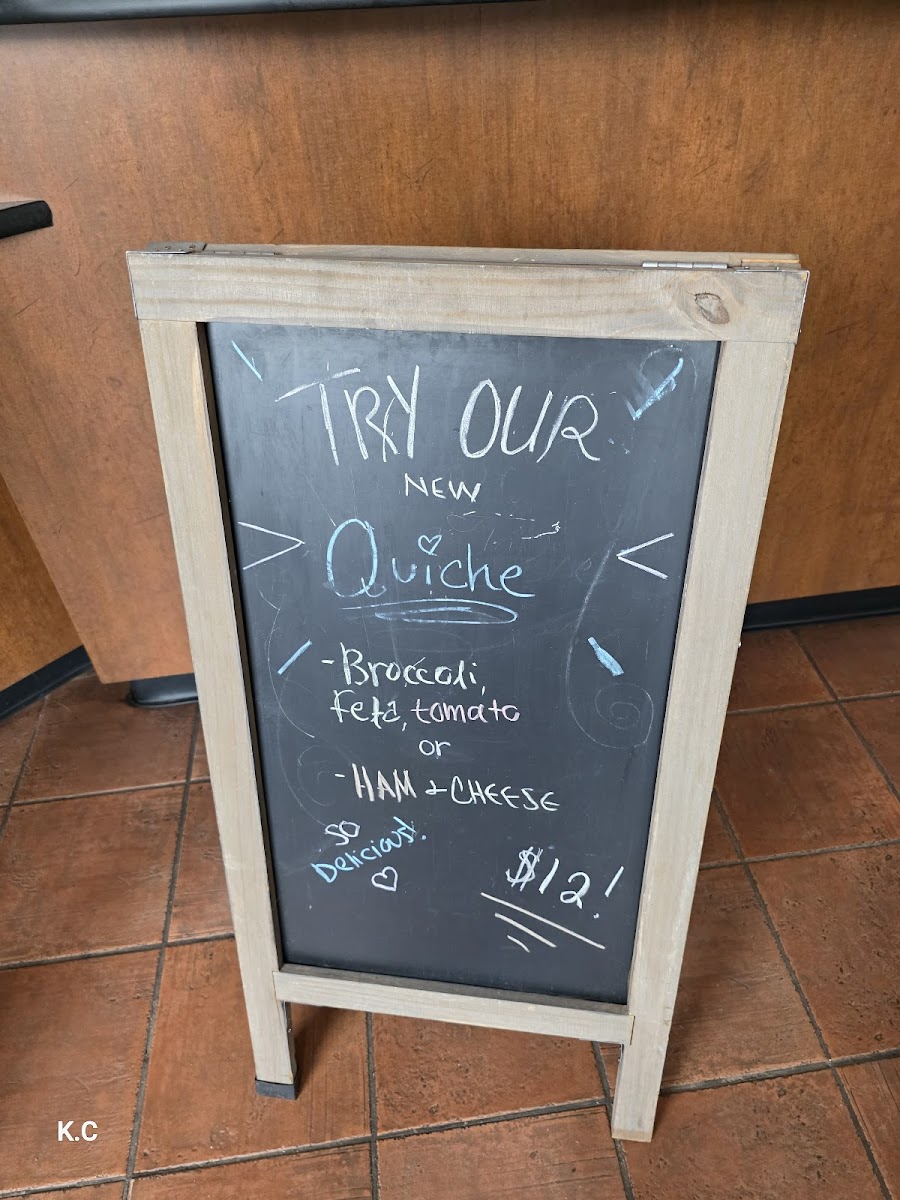 TRY OUR
NEW
Quiche
-Broccoli,
Feta, tomato
or
-HAM + CHEESE
SO
Delicious!
$12!
K.C